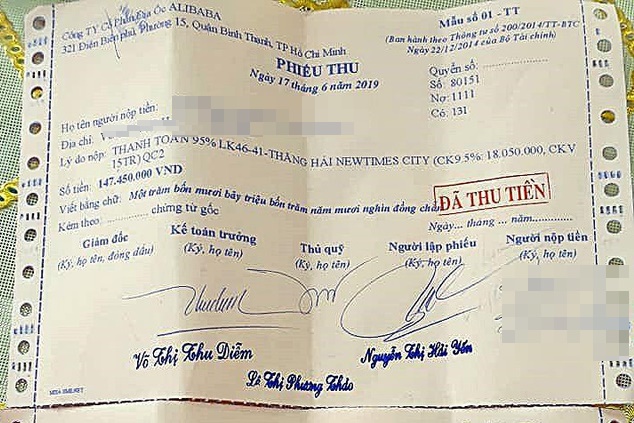 Công TY Cổ Phần Địa Ốc ALIBABA
321 Điện Biên phủ, Phường 15, Quận Bình Thạnh, TP Hồ Chí Minh
Mẫu số 01 - TT
(Ban hành theo Thông tư số 200/2014/TT-BTC
Ngày 22/12/2014 của Bộ Tài chính)
PHIẾU THU
Ngày 17 tháng 6 năm 2019
Quyển số:
Số: 80151
Nợ: 1111
Có: 131
Họ tên người nộp tiền:
Địa chỉ:
Lý do nộp: THANH TOÁN 95% LK46-41-THẮNG HẢI NEWTIMES CITY (CK9.5%: 18.050.000, CKV
15TR) QC2
Số tiền: 147.450.000 VND
Viết bằng chữ: Một trăm bốn mươi bảy triệu bốn trăm năm mươi nghìn đồng chẵn
Kèm theo: ............ chứng từ gốc
ĐÃ THU TIỀN
Ngày... tháng ... năm...........
Giám đốc
(Ký, họ tên, đóng dấu)
Kế toán trưởng
(Ký, họ tên)
Thủ quỹ
(Ký, họ tên)
Người lập phiếu
(Ký, họ tên)
Người nộp tiền
(Ký, họ tên)
Võ Thị Thu Diễm
Lê Thị Phương Thảo
Nguyễn Thị Hải Yến
MISA SME.NET